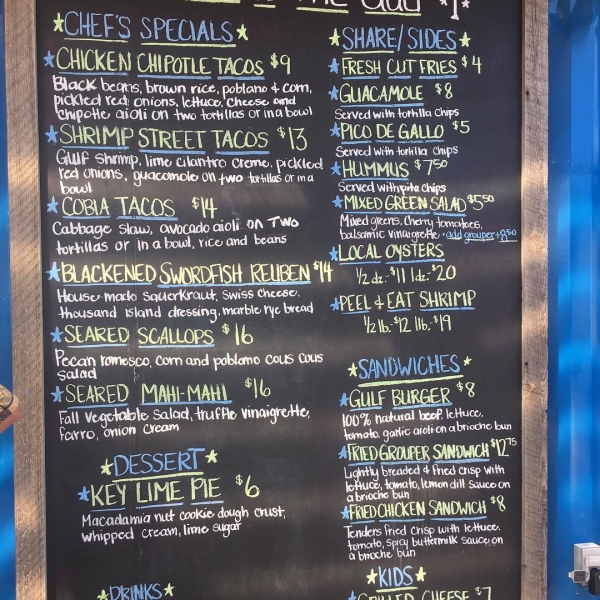 CHEF'S SPECIALS
CHICKEN CHIPOTLE TACOS $9
Black beans, brown rice, poblano & corn,
pickled red onions, lettuce, cheese and
chipotle aioli on two tortillas or in a bowl
SHRIMP STREET TACOS $13
Gulf shrimp, lime cilantro creme, pickled
red onions, guacomole on two tortillas or in a
bowl
COBIA TACOS $14
Cabbage slaw, avocado aioli on Two
tortillas or in a bowl, rice and beans
BLACKENED SWORDFISH REUBEN $14
House made Sauerkraut, Swiss cheese,
thousand island dressing, marble rye bread
SEARED SCALLOPS $16
Pecan romesco, corn and poblano cous cous
salad
SEARED MAHI-MAHI $16
Fall vegetable Salad, truffle vinaigrette,
farro, onion cream
DESSERT
KEY LIME PIE $6
Macadamia nut cookie dough crust,
whipped cream, lime sugar
DRINKS
SHARE/SIDES
FRESH CUT FRIES $4
GUACAMOLE $8
Served with tortilla chips
PICO DE GALLO $5
Served with tortilla chips
HUMMUS $7.50
Served with pita chips
MIXED GREEN SALAD $5.50
Mixed greens, cherry tomatoes,
balsamic vinaigrette, •add grouper +8.50
LOCAL OYSTERS
1/2 dz - $11 1dz - $20
PEEL & EAT SHRIMP
1/2 lb - $12 lb - $19
SANDWICHES
GULF BURGER $8
100% natural beef, lettuce,
tomato, garlic aioli on a brioche bun
FRIED GROUPER SANDWICH $12.75
Lightly breaded & fried crisp with
lettuce, tomato, lemon dill sauce on
a brioche bun
FRIED CHICKEN SANDWICH $8
Tenders fried crisp with lettuce,
tomato, spicy buttermilk sauce on
a brioche bun
KIDS
GRILLED CHEESE $7